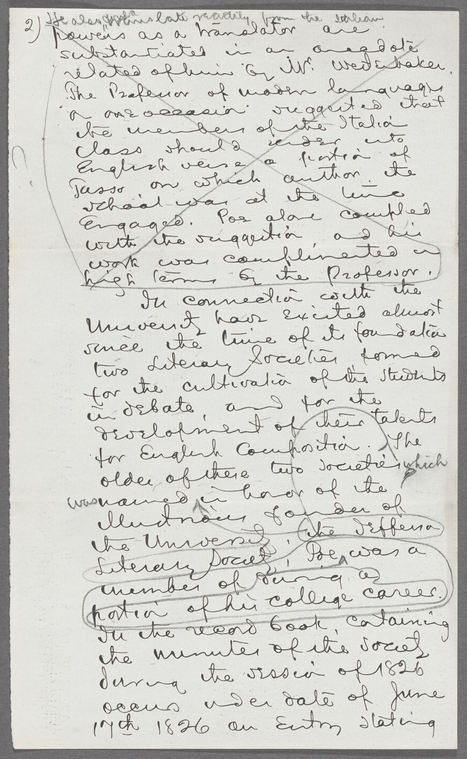 2) He also translate readily from the Italian.
Powers as a translator are
substantiated in an anecdote
related of him by Mr. Wertenbaker.
The Professor of modern languages
on one occasion suggested that
the members of the Italian
class should render into
English verse a portion of
Tasso on which author the
school was at the time
Engaged. Poe alone complied
with the suggestion, and his
work was complimented in
high terms by the Professor.
In connection with the
University have existed almost
since the time of its foundation
two Literary Societies formed
for the cultivation of the Students
in debate, and for the
development of their talents
for English Composition. The
older of these two Societies, which
was named in honor of the
illustrious founder of
the University, the Jefferson
Literary Society, Poe was a
member of during a
portion of his college career.
In the record book, containing
the minutes of the Society
during the session of 1826
occurs under date of June
17th 1826 an Entry stating